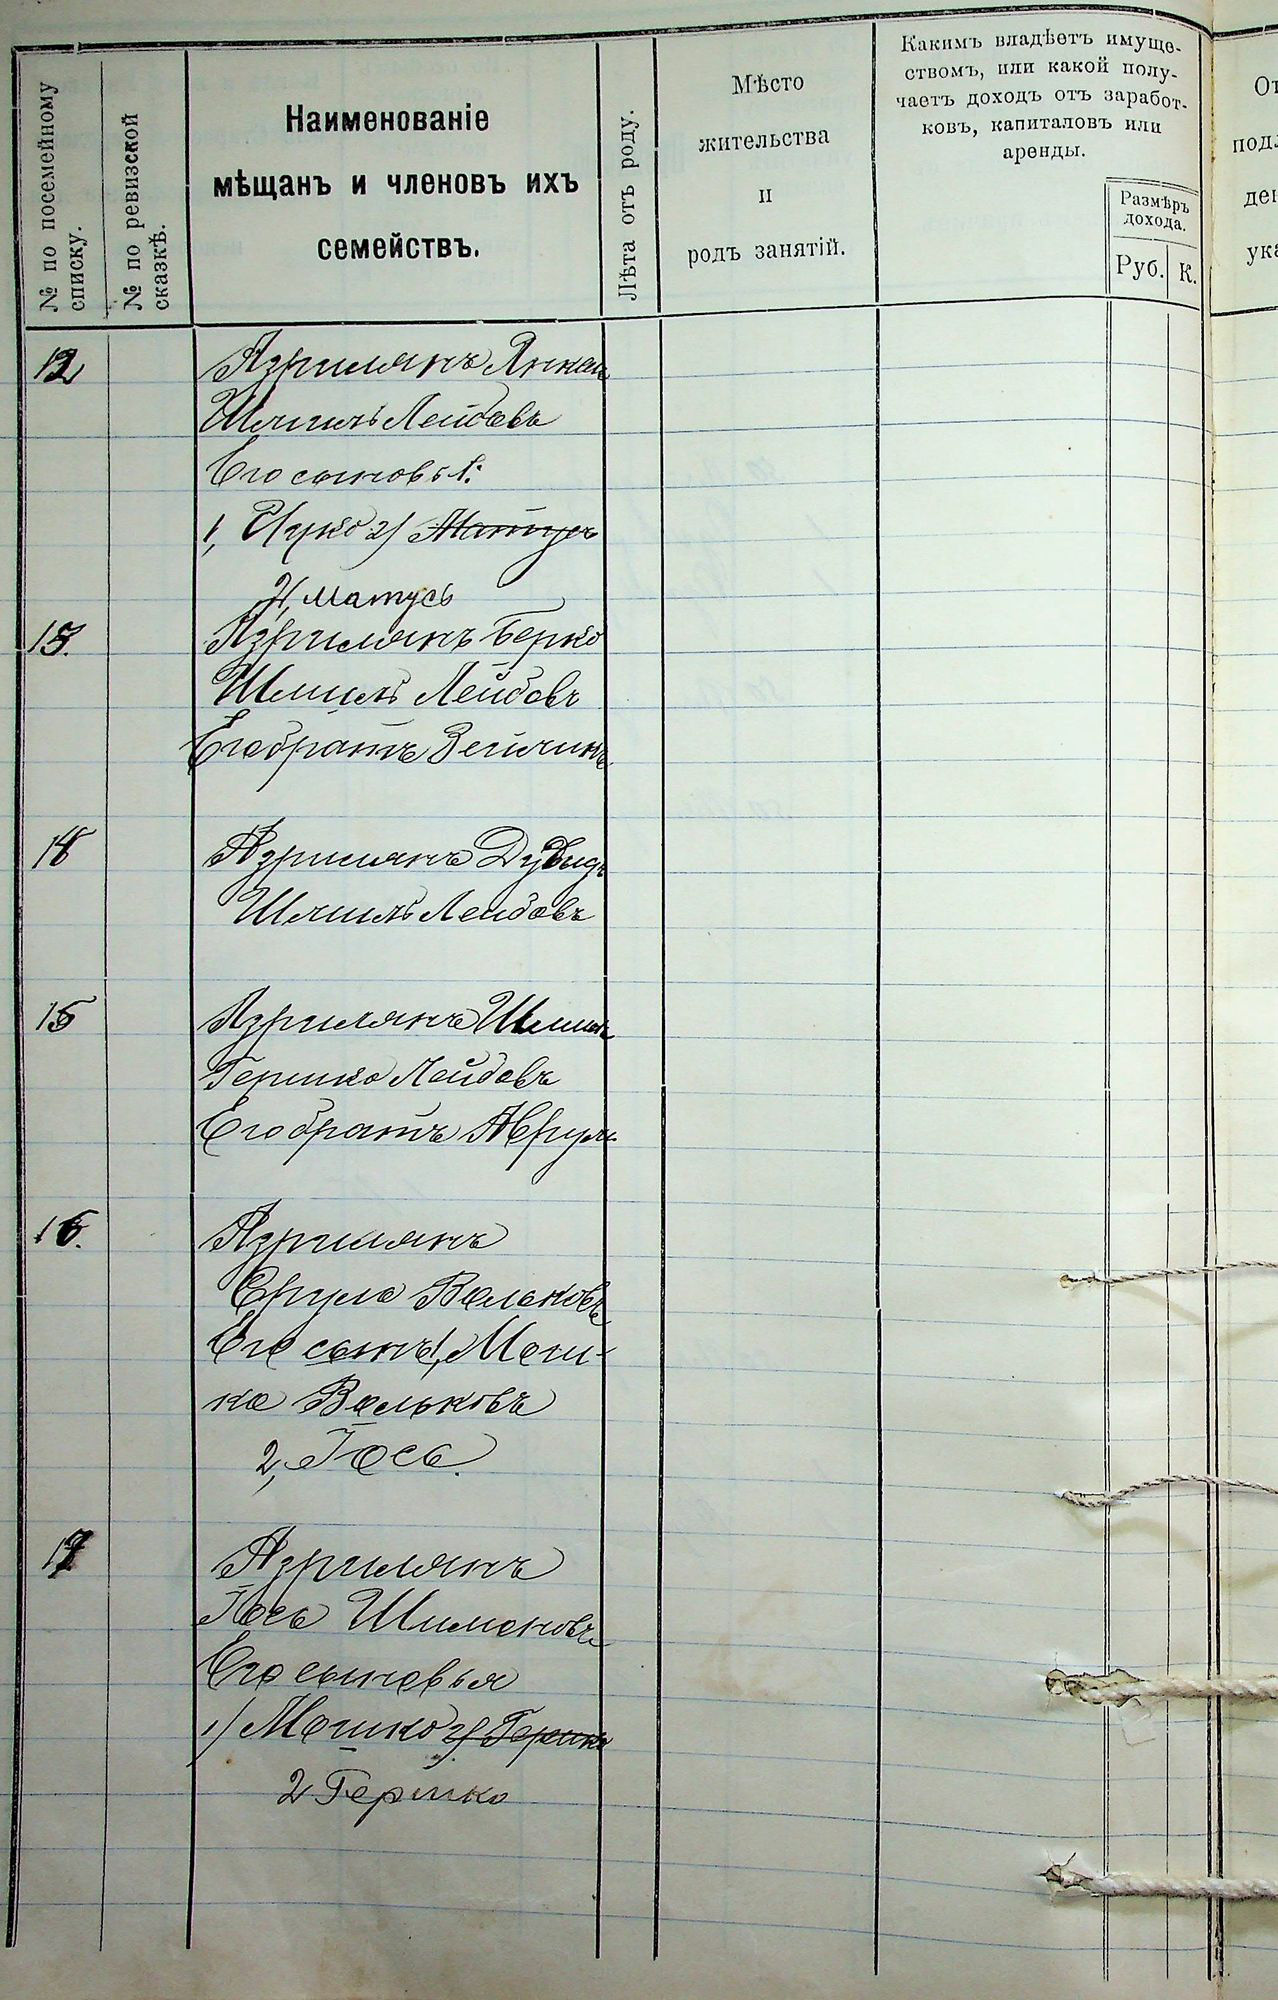 № по посемейному
списку.
№ по ревизской
сказкѣ.
Наименованіе
мѣщанъ и членовъ ихъ
семействъ.
Лѣта отъ роду.
Мѣсто
жительства
и
родъ занятій.
Какимъ владѣетъ имуще-
ствомъ, или какой полу-
чаетъ доходъ отъ заработ-
ковъ, капиталовъ или
аренды.
Размѣръ
дохода.
Руб. К.
12 Азрилянъ Янкель
Шмиль Лейбовъ
Его сыновья:
1, Ицко 2) Матусъ
2, Матусь
13. Азрилянъ Берко
Шмиль Лейбовъ
Его братъ Зейликъ
14 Азрилянъ Дувидъ
Шмиль Лейбовъ
15 Азрилянъ Шмиль
Гершко Лейбовъ
Его братъ Аврумъ
16. Азрилянъ
Сруль Вольковъ
Его сынъ 1, Мош-
ко Вольковъ
2, Іось.
17 Азрилянъ
Іось Шимоновъ
Его сыновья
1) Мошко 2) Гершко
2, Гершко